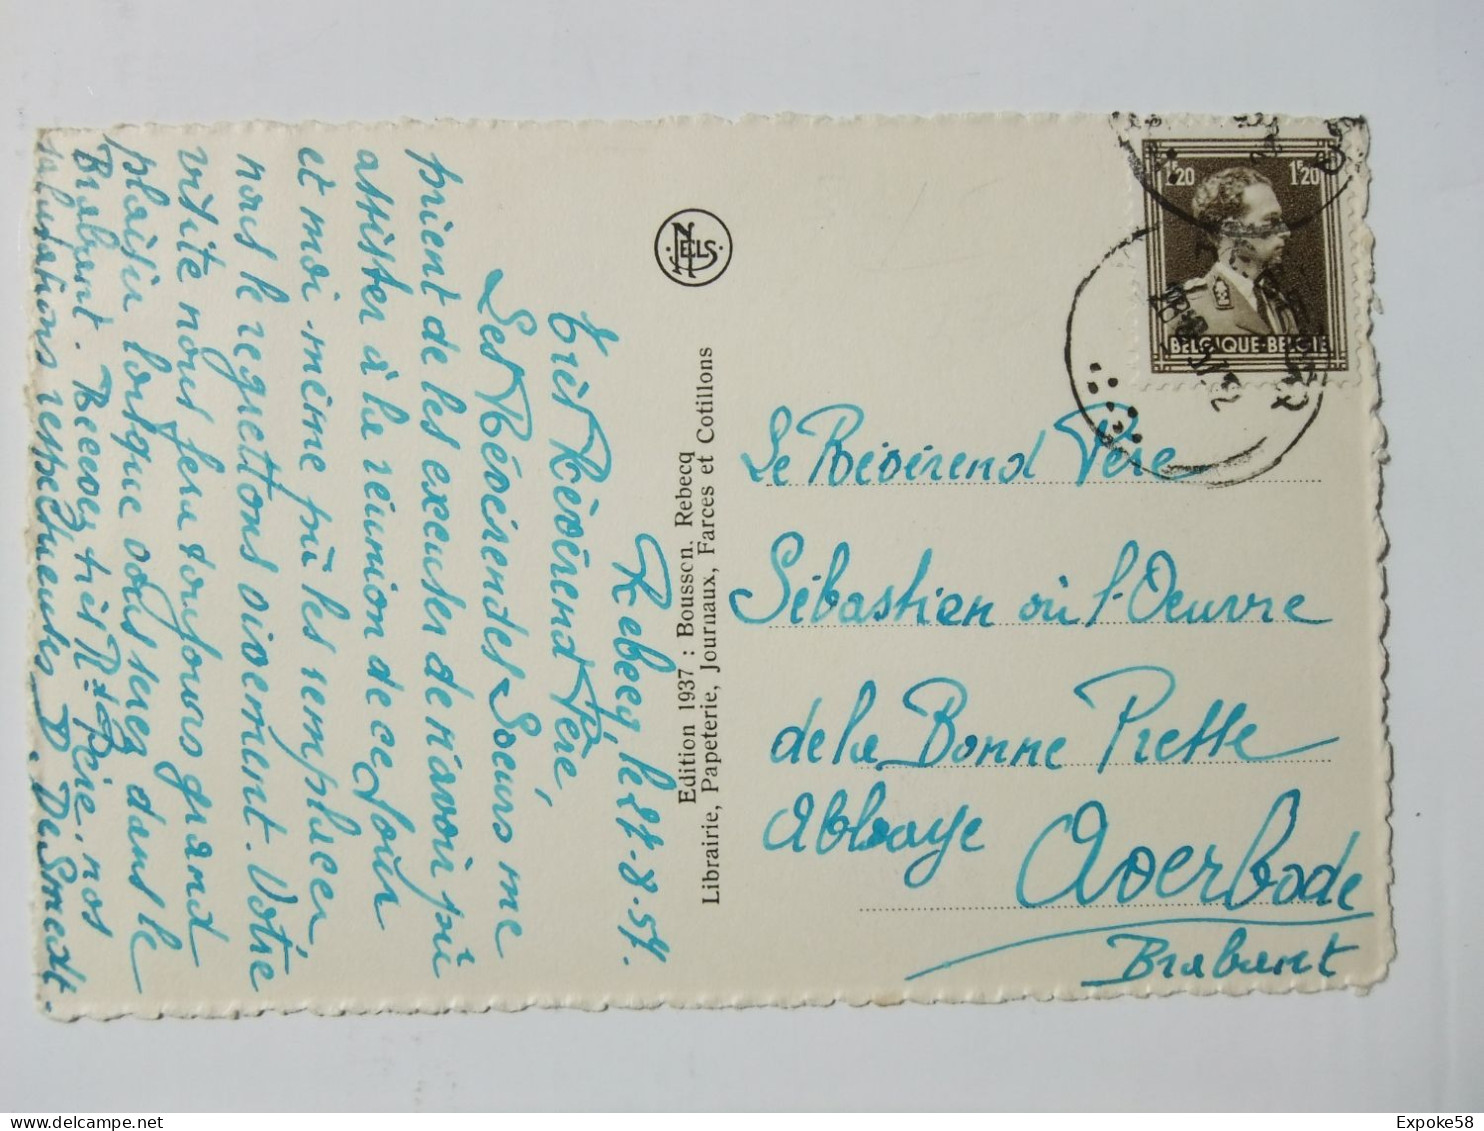 Rebecq le 27-8-57.
Très Révérend Père,
Les Révérendes Soeurs me
prient de les excuser de n'avoir pû
assister à la réunion de ce jour
et moi-même pû les remplacer
nous le regrettons vivement. Votre
visite nous fera toujours grand
plaisir lorsque vous serez dans le
Brabant. Recevez très R. Père, nos
salutations respectueuses D. De Smedt.
NELS
Edition 1937 : Boussen. Rebecq
Librairie, Papeterie, Journaux, Farces et Cotillons
1F20 1F20
BELGIQUE-BELGIE
Le Révérend Père
Sébastien où l'Oeuvre
de la Bonne Presse
Abbaye Averbode
Brabant
Expoke58